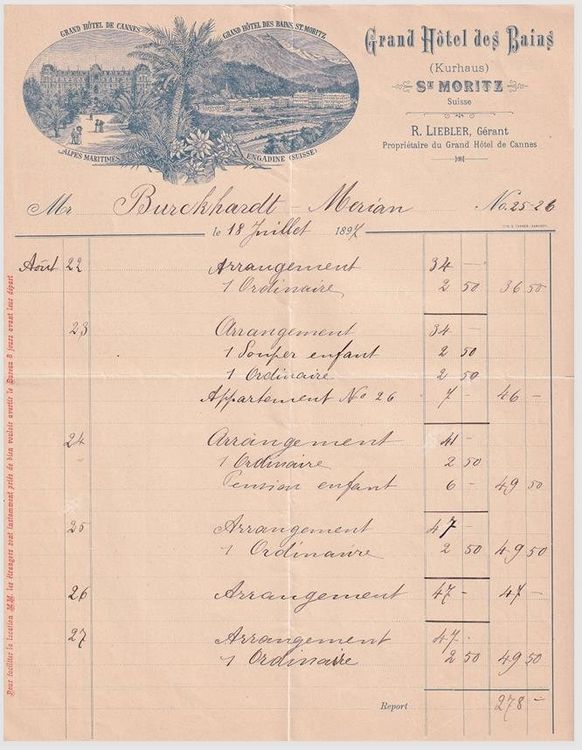 GRAND HÔTEL DE CANNES
GRAND HÔTEL DES BAINS, ST MORITZ
ALPES MARITIMES
ENGADINE (SUISSE)
Grand Hôtel des Bains
(Kurhaus)
ST MORITZ
Suisse
R. LIEBLER, Gérant
Propriétaire du Grand Hôtel de Cannes
Mr Burckhardt-Merian No. 25-26
le 18 Juillet 1897
Août 22 Arrangement 34 -
1 Ordinaire 2 50 36 50
23 Arrangement 34 -
1 Souper enfant 2 50
1 Ordinaire 2 50
Appartement No 26 7 - 46 -
24 Arrangement 41 -
1 Ordinaire 2 50
Pension enfant 6 - 49 50
25 Arrangement 47 -
1 Ordinaire 2 50 49 50
26 Arrangement 47 - 47 -
27 Arrangement 47 -
1 Ordinaire 2 50 49 50
Report 278 -
Pour faciliter la location MM. les étrangers sont instamment priés de bien vouloir avertir le Bureau 8 jours avant leur départ